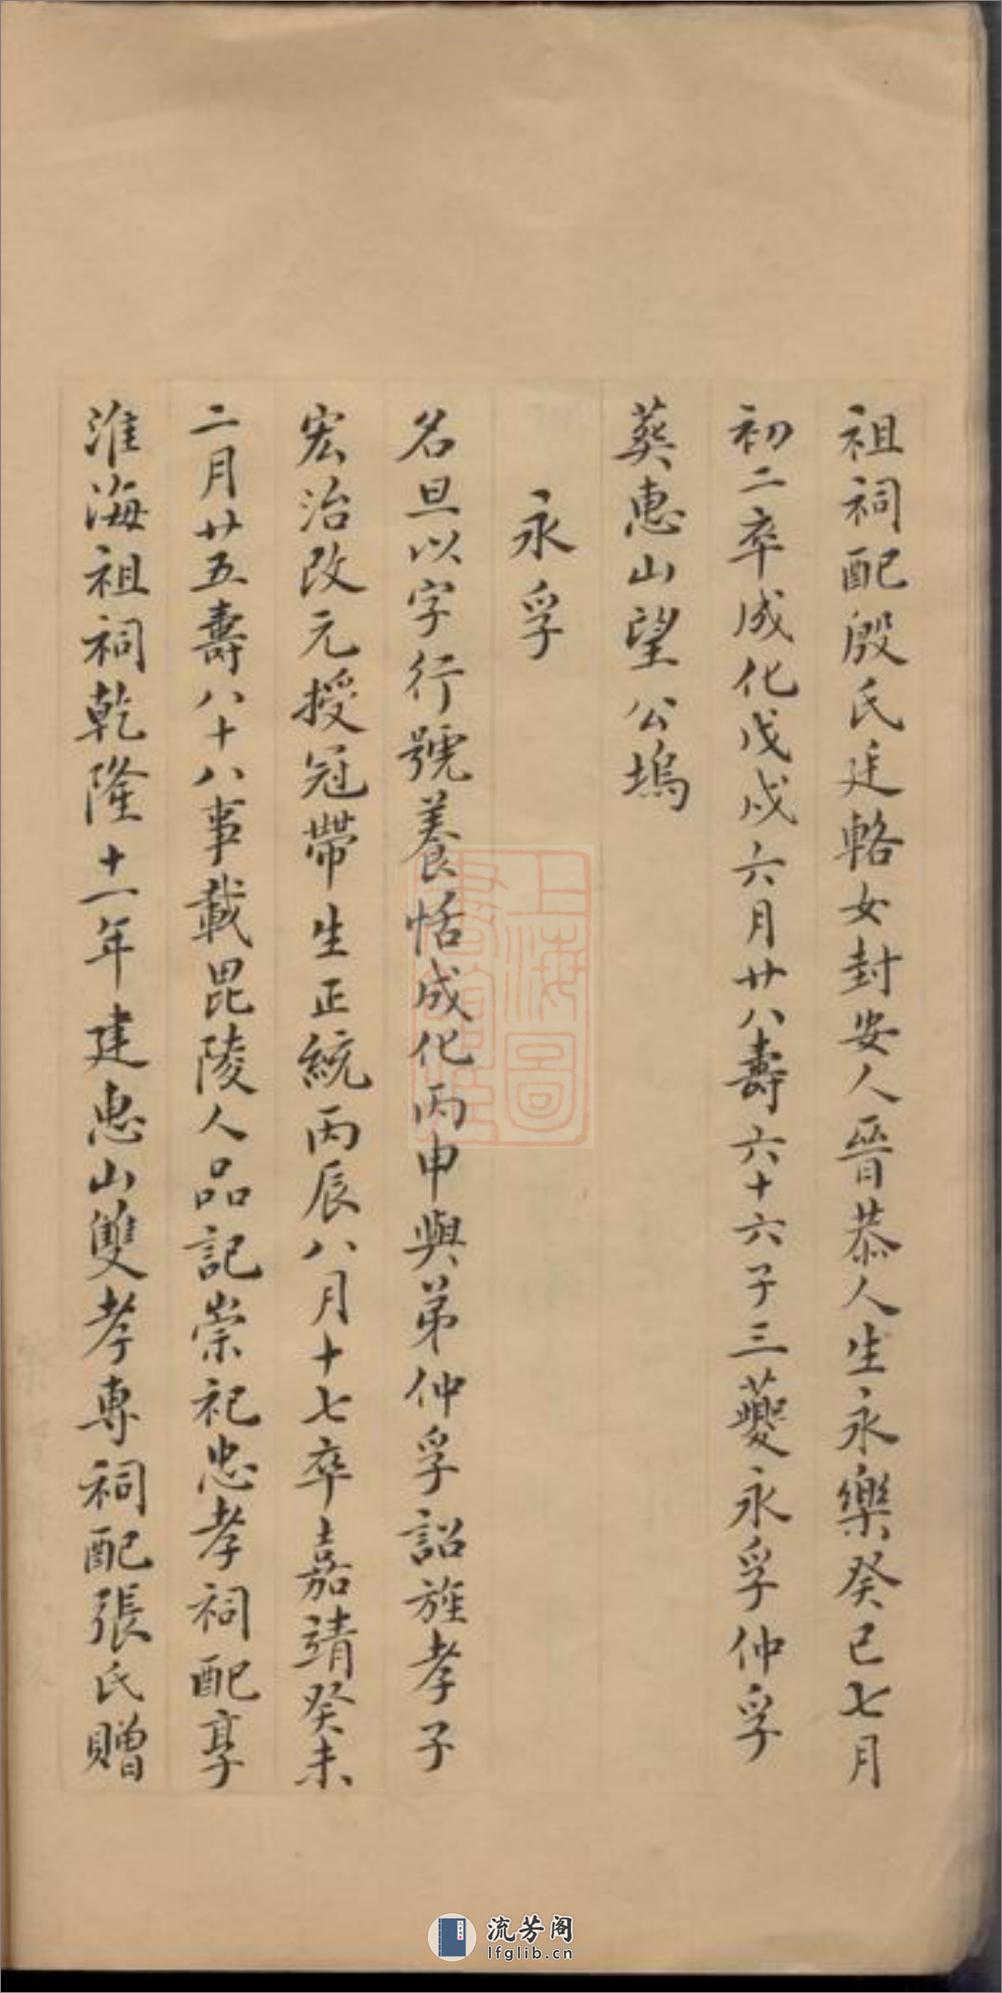 祖祠配殷氏廷輅女封安人晉恭人生永樂癸巳七月
初二卒成化戊戌六月廿八壽六十六子三夔永孚仲孚
葬惠山望公塢
永孚
名旦以字行號養恬成化丙申與弟仲孚詔旌孝子
宏治改元授冠帶生正統丙辰八月十七卒嘉靖癸未
二月廿五壽八十八事載毘陵人品記崇祀忠孝祠配享
淮海祖祠乾隆十一年建惠山雙孝專祠配張氏贈
上海圖書館藏
流芳阁
lfglib.cn